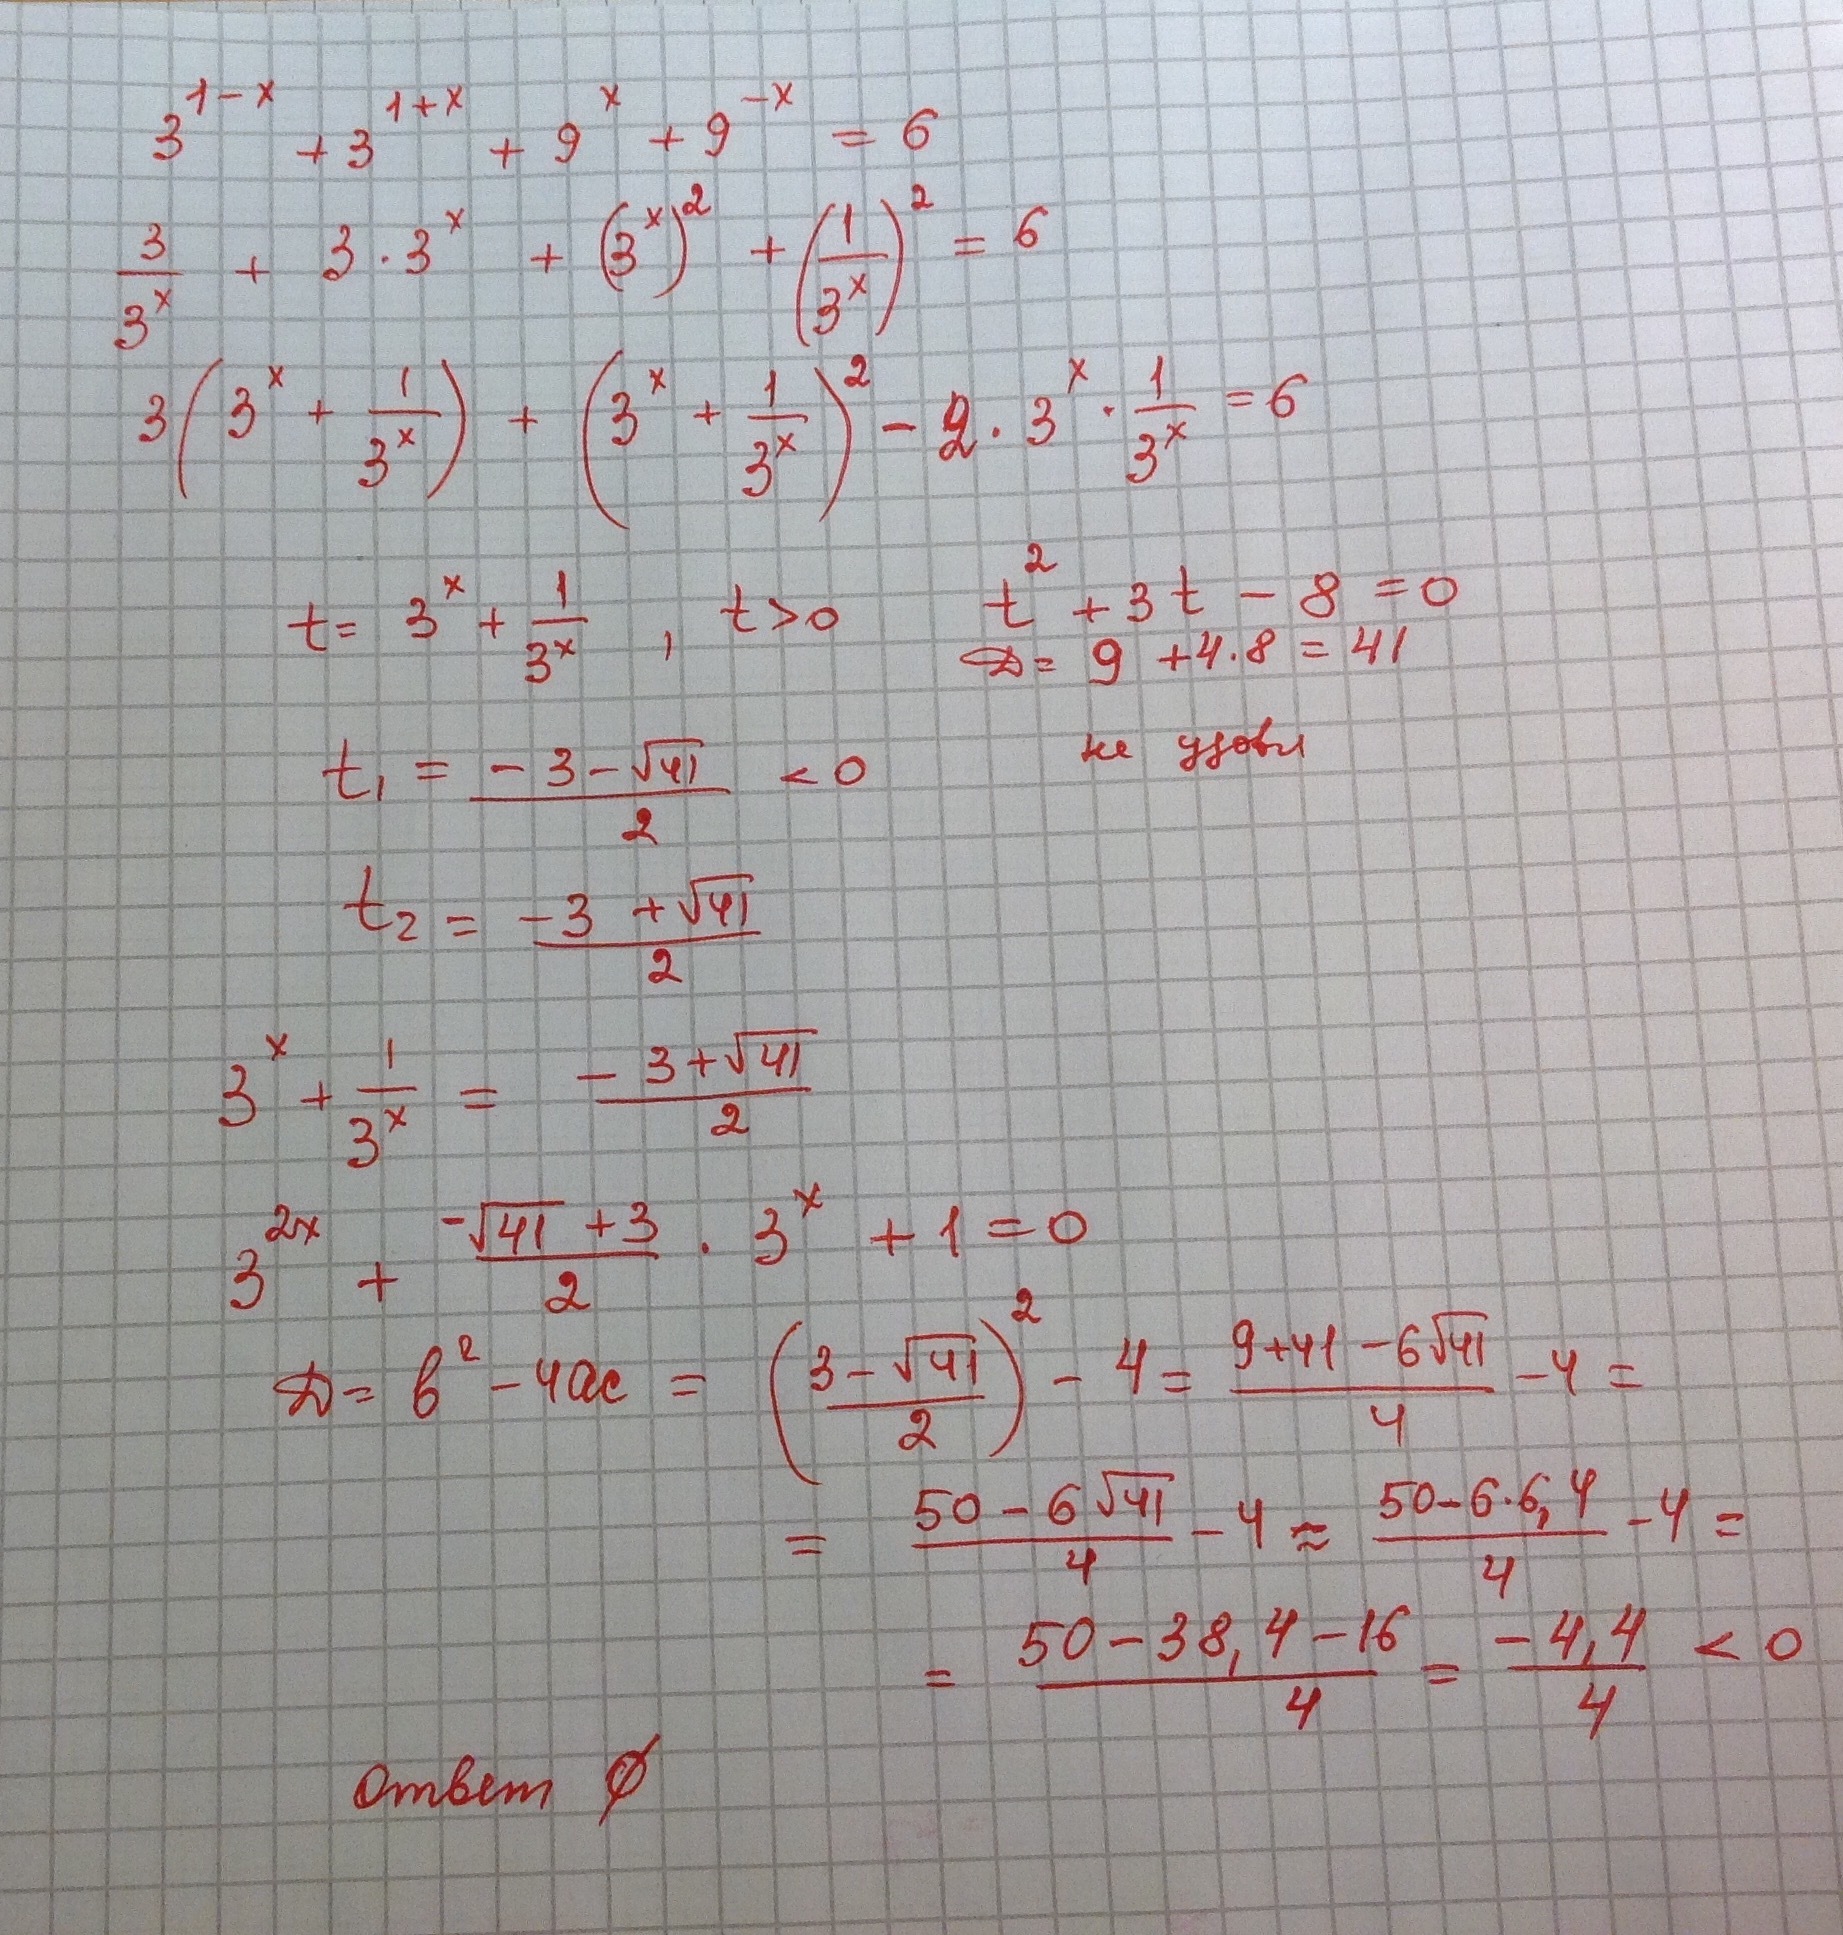 3^{1-x} + 3^{1+x} + 9^x + 9^{-x} = 6
\frac{3}{3^x} + 3 \cdot 3^x + (3^x)^2 + \left(\frac{1}{3^x}\right)^2 = 6
3\left(3^x + \frac{1}{3^x}\right) + \left(3^x + \frac{1}{3^x}\right)^2 - 2 \cdot 3^x \cdot \frac{1}{3^x} = 6
t = 3^x + \frac{1}{3^x} , t > 0 t^2 + 3t - 8 = 0
D = 9 + 4 \cdot 8 = 41
t_1 = \frac{-3 - \sqrt{41}}{2} < 0 не удовл
t_2 = \frac{-3 + \sqrt{41}}{2}
3^x + \frac{1}{3^x} = \frac{-3 + \sqrt{41}}{2}
3^{2x} + \frac{-\sqrt{41} + 3}{2} \cdot 3^x + 1 = 0
D = b^2 - 4ac = \left(\frac{3 - \sqrt{41}}{2}\right)^2 - 4 = \frac{9 + 41 - 6\sqrt{41}}{4} - 4 =
= \frac{50 - 6\sqrt{41}}{4} - 4 ≈ \frac{50 - 6 \cdot 6,4}{4} - 4 =
= \frac{50 - 38,4 - 16}{4} = \frac{-4,4}{4} < 0
Ответ ∅